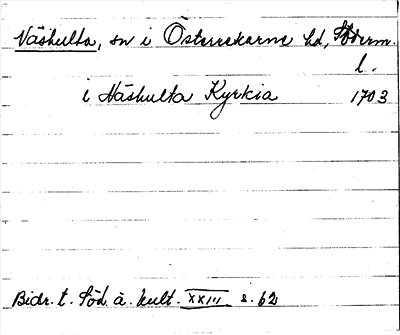 Näshulta, sn i Österrekarne hd, Söderm.
l.
i Näshulta Kyrkia 1703
Bidr. t. Söd. ä. kult. XXIII s. 62